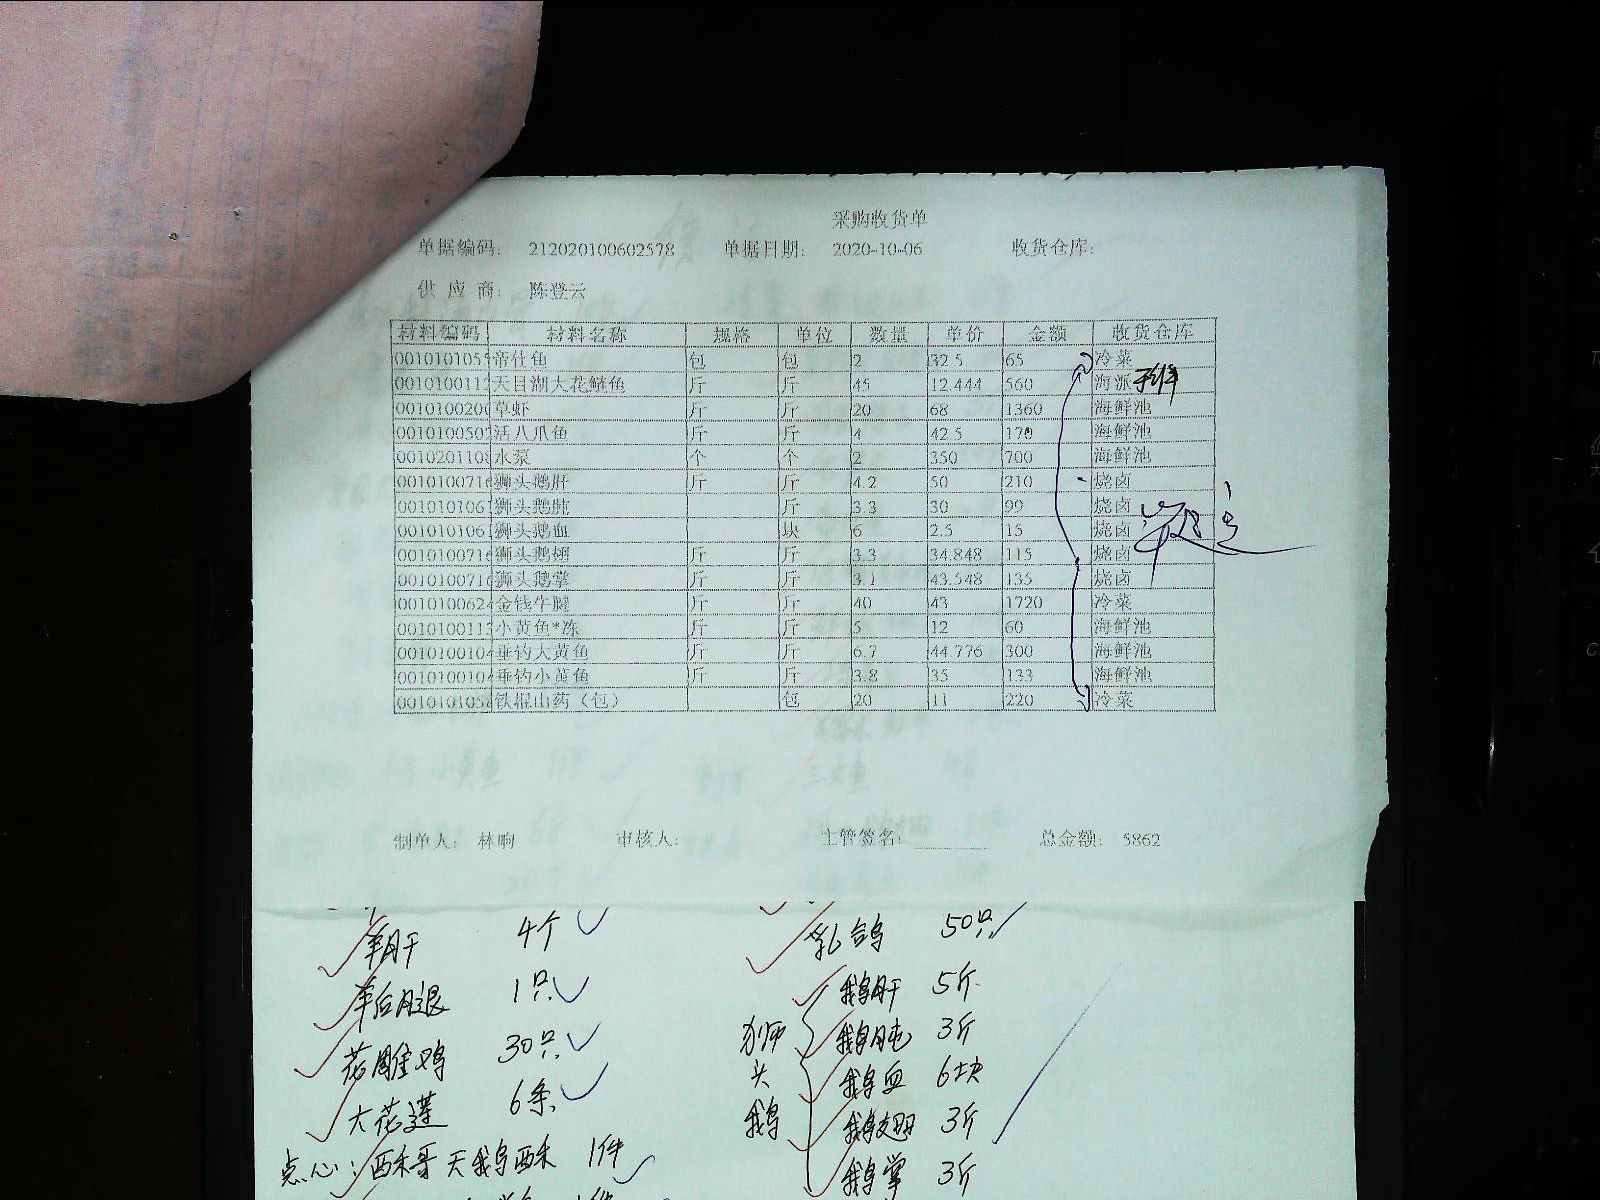 采购收货单
单据编码: 212020100602578 单据日期: 2020-10-06 收货仓库:
供 应 商: 陈登云
材料编码 材料名称 规格 单位 数量 单价 金额 收货仓库
001010105 帝仕鱼 包 包 2 32.5 65 冷菜
001010011 天目湖大花鲢鱼 斤 斤 45 12.444 560 海派
001010020 草虾 斤 斤 20 68 1360 海鲜池
001010050 活八爪鱼 斤 斤 4 42.5 170 海鲜池
001020110 水泵 个 个 2 350 700 海鲜池
001010071 狮头鹅肝 斤 斤 4.2 50 210 烧卤
001010106 狮头鹅肫 斤 3.3 30 99 烧卤
001010106 狮头鹅血 块 6 2.5 15 烧卤
001010071 狮头鹅翅 斤 斤 3.3 34.848 115 烧卤
001010071 狮头鹅掌 斤 斤 3.1 43.548 135 烧卤
001010062 金钱牛腱 斤 斤 40 43 1720 冷菜
001010011 小黄鱼*冻 斤 斤 5 12 60 海鲜池
001010010 垂钓大黄鱼 斤 斤 6.7 44.776 300 海鲜池
001010010 垂钓小黄鱼 斤 斤 3.8 35 133 海鲜池
001010105 铁棍山药（包） 包 20 11 220 冷菜
制单人: 林昫 审核人: 主管签名: 总金额: 5862
羊肝 4个 乳鸽 50只
羊后腿 1只 鹅肝 5斤
花雕鸡 30只 狮头鹅 鹅肫 3斤
大花莲 6条 鹅血 6块
鹅翅 3斤
点心: 西米哥 天鹅西米 1件 鹅掌 3斤